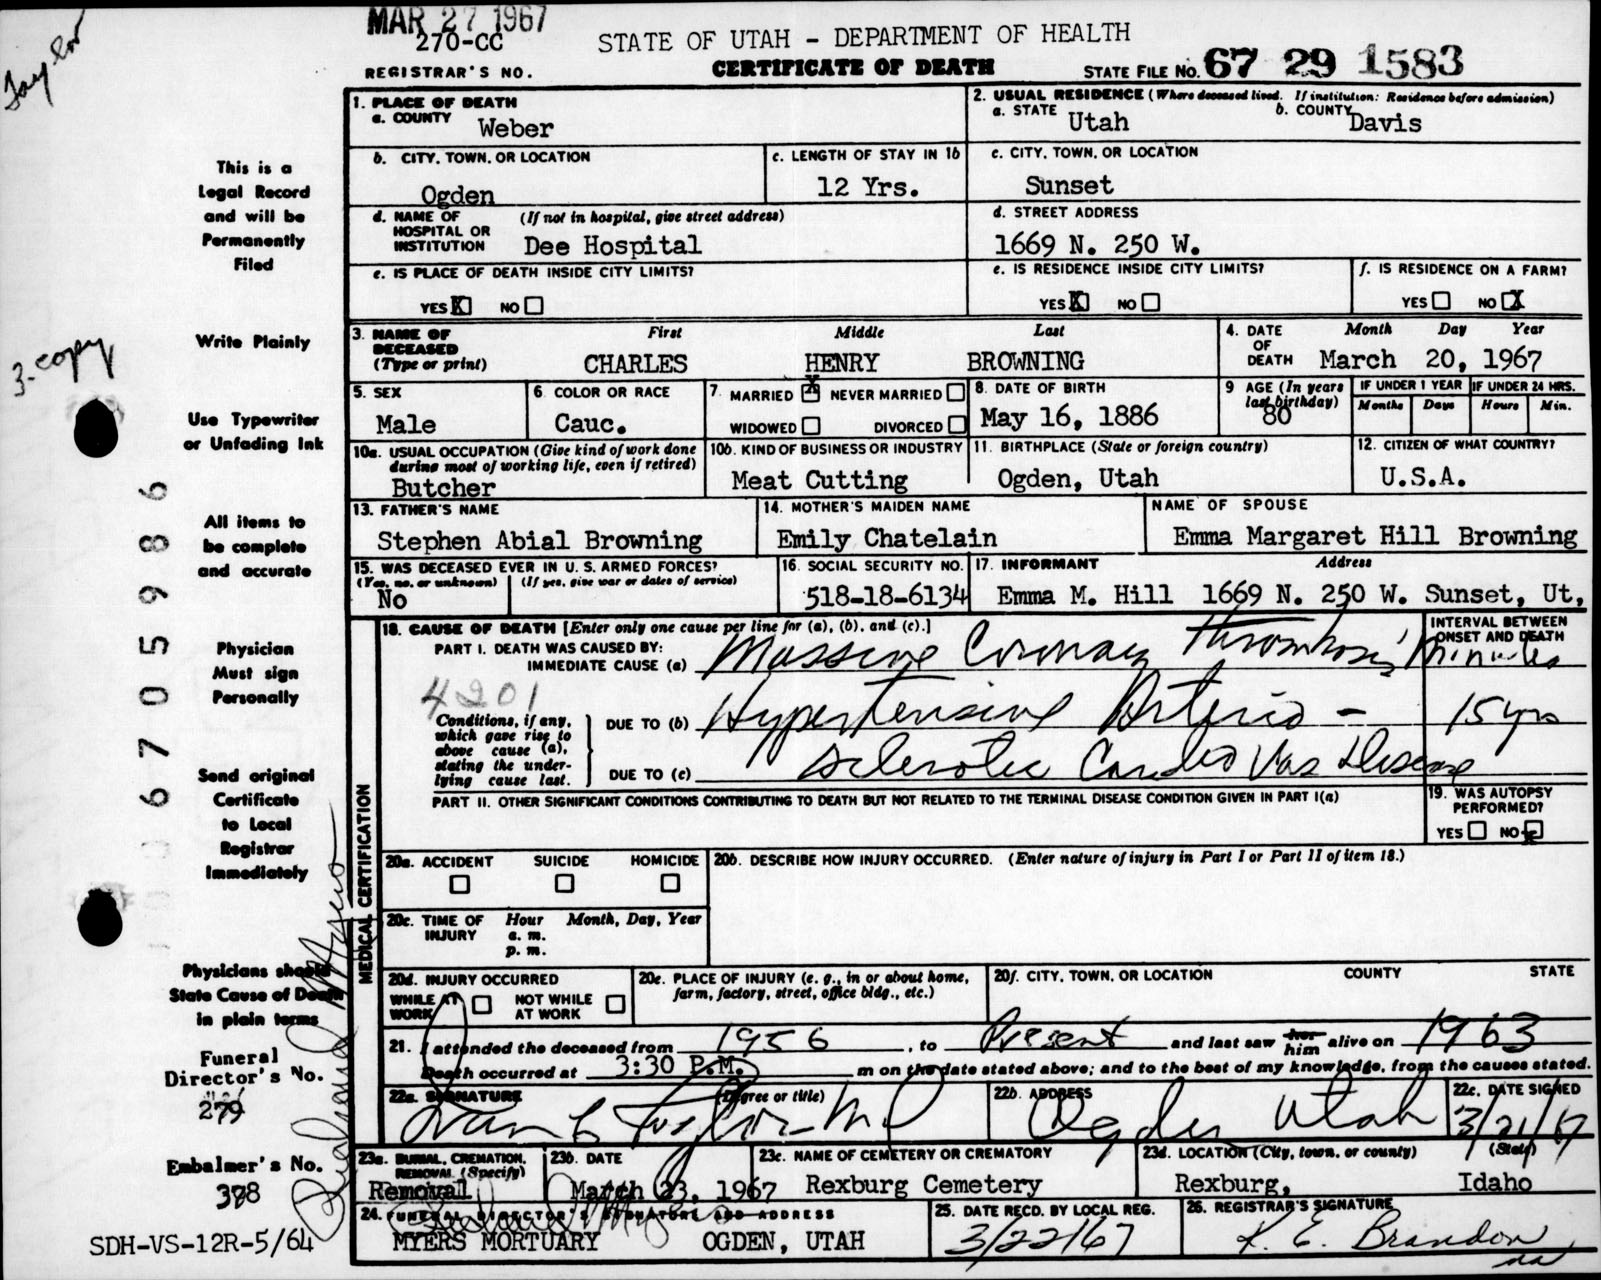 MAR 27 1967
270-CC
REGISTRAR'S NO.
STATE OF UTAH - DEPARTMENT OF HEALTH
CERTIFICATE OF DEATH
STATE FILE No. 67 29 1583
Taylor
This is a
Legal Record
and will be
Permanently
Filed
Write Plainly
3-copy
Use Typewriter
or Unfading Ink
All items to
be complete
and accurate
Physician
Must sign
Personally
Send original
Certificate
to Local
Registrar
Immediately
Physicians should
State Cause of Death
in plain terms
Funeral
Director's No.
279
Embalmer's No.
378
SDH-VS-12R-5/64
67059 86
1. PLACE OF DEATH
a. COUNTY Weber
2. USUAL RESIDENCE (Where deceased lived. If institution: Residence before admission)
a. STATE Utah b. COUNTY Davis
b. CITY, TOWN, OR LOCATION
Ogden
c. LENGTH OF STAY IN 1b
12 Yrs.
c. CITY, TOWN, OR LOCATION
Sunset
d. NAME OF HOSPITAL OR INSTITUTION (If not in hospital, give street address)
Dee Hospital
d. STREET ADDRESS
1669 N. 250 W.
e. IS PLACE OF DEATH INSIDE CITY LIMITS?
YES X NO
e. IS RESIDENCE INSIDE CITY LIMITS?
YES X NO
f. IS RESIDENCE ON A FARM?
YES NO X
3. NAME OF DECEASED (Type or print)
First Middle Last
CHARLES HENRY BROWNING
4. DATE OF DEATH Month Day Year
March 20, 1967
5. SEX
Male
6. COLOR OR RACE
Cauc.
7. MARRIED X NEVER MARRIED
WIDOWED DIVORCED
8. DATE OF BIRTH
May 16, 1886
9 AGE (In years last birthday)
80
IF UNDER 1 YEAR
Months Days
IF UNDER 24 HRS.
Hours Min.
10a. USUAL OCCUPATION (Give kind of work done during most of working life, even if retired)
Butcher
10b. KIND OF BUSINESS OR INDUSTRY
Meat Cutting
11. BIRTHPLACE (State or foreign country)
Ogden, Utah
12. CITIZEN OF WHAT COUNTRY?
U.S.A.
13. FATHER'S NAME
Stephen Abial Browning
14. MOTHER'S MAIDEN NAME
Emily Chatelain
NAME OF SPOUSE
Emma Margaret Hill Browning
15. WAS DECEASED EVER IN U. S. ARMED FORCES?
(Yes, no, or unknown) (If yes, give war or dates of service)
No
16. SOCIAL SECURITY NO.
518-18-6134
17. INFORMANT Address
Emma M. Hill 1669 N. 250 W. Sunset, Ut,
MEDICAL CERTIFICATION
18. CAUSE OF DEATH [Enter only one cause per line for (a), (b), and (c).]
INTERVAL BETWEEN ONSET AND DEATH
PART I. DEATH WAS CAUSED BY:
IMMEDIATE CAUSE (a) Massive Coronary Thrombosis minutes
4201
Conditions, if any, which gave rise to above cause (a), stating the underlying cause last.
DUE TO (b) Hypertensive Arterio - 15 yrs
DUE TO (c) sclerotic Cardio Vas Disease
PART II. OTHER SIGNIFICANT CONDITIONS CONTRIBUTING TO DEATH BUT NOT RELATED TO THE TERMINAL DISEASE CONDITION GIVEN IN PART I(a)
19. WAS AUTOPSY PERFORMED?
YES NO X
20a. ACCIDENT SUICIDE HOMICIDE
20b. DESCRIBE HOW INJURY OCCURRED. (Enter nature of injury in Part I or Part II of item 18.)
20c. TIME OF INJURY Hour Month, Day, Year
a. m.
p. m.
20d. INJURY OCCURRED
WHILE AT WORK NOT WHILE AT WORK
20e. PLACE OF INJURY (e. g., in or about home, farm, factory, street, office bldg., etc.)
20f. CITY, TOWN, OR LOCATION COUNTY STATE
21. I attended the deceased from 1956, to Present and last saw her him alive on 1963
Death occurred at 3:30 P.M. m on the date stated above; and to the best of my knowledge, from the causes stated.
22a. SIGNATURE (Degree or title)
Taylor MD
22b. ADDRESS
Ogden Utah
22c. DATE SIGNED
3/21/67
23a. BURIAL, CREMATION, REMOVAL (Specify)
Removal
23b. DATE
March 23, 1967
23c. NAME OF CEMETERY OR CREMATORY
Rexburg Cemetery
23d. LOCATION (City, town, or county) (State)
Rexburg, Idaho
24. FUNERAL DIRECTOR'S SIGNATURE AND ADDRESS
MYERS MORTUARY OGDEN, UTAH
25. DATE RECD. BY LOCAL REG.
3/22/67
26. REGISTRAR'S SIGNATURE
K. E. Brandon